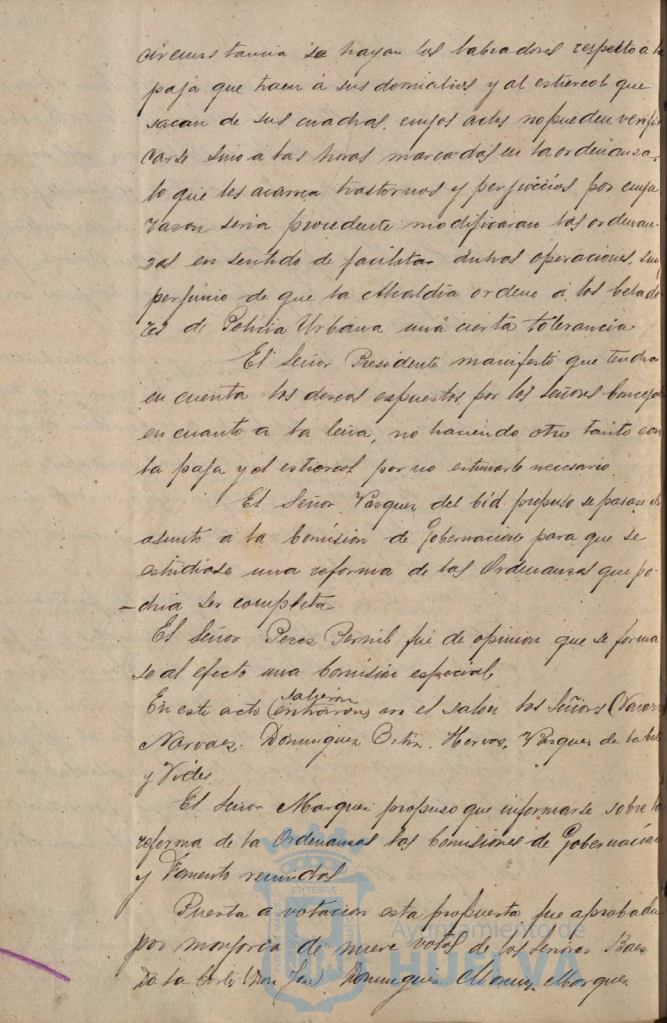 circunstancia se hayan los labradores respecto á la
paja que traen á sus domicilios y al estiercol que
sacan de sus cuadras, cuyos actos no pueden verifi
carse sino a las horas marcadas en la ordenanza,
lo que les acarrea trastornos y perjuicios por cuya
razon seria procedente modificaran las ordenan-
zas en sentido de facilitar dichas operaciones, sin
perjuicio de que la Alcaldia ordene á los celado
res de Policia Urbana una cierta tolerancia
El Señor Presidente manifestó que tendra
en cuenta los deseos expuestos por los Señores Concejal
en cuanto a la leña, no haciendo otro tanto con
la paja y el estiercol por no estimarlo necesario
El Señor Vazquez del Cid propuso se pasase el
asunto a la Comision de Gobernacion para que se
estudiase una reforma de las Ordenanzas que po-
dria ser completa
El Señor Perez Bernib fué de opinion que se forma
se al efecto una Comision especial
En este acto (entraron) salieron en el salon los Señores
Narvaez, Dominguez Ortiz, Hervas, Vazquez de la
y Vides
El Señor Marquez propuso que informarse sobre la
reforma de la Ordenanzas las Comisiones de Gobernación
y Fomento reunidas
Puesta a votacion esta propuesta fue aprobada
por mayoria de nueve votos de los Señores Baez
De la Corte (Don José) Dominguez Moreno, Marquez
Ayuntamiento de
HUELVA